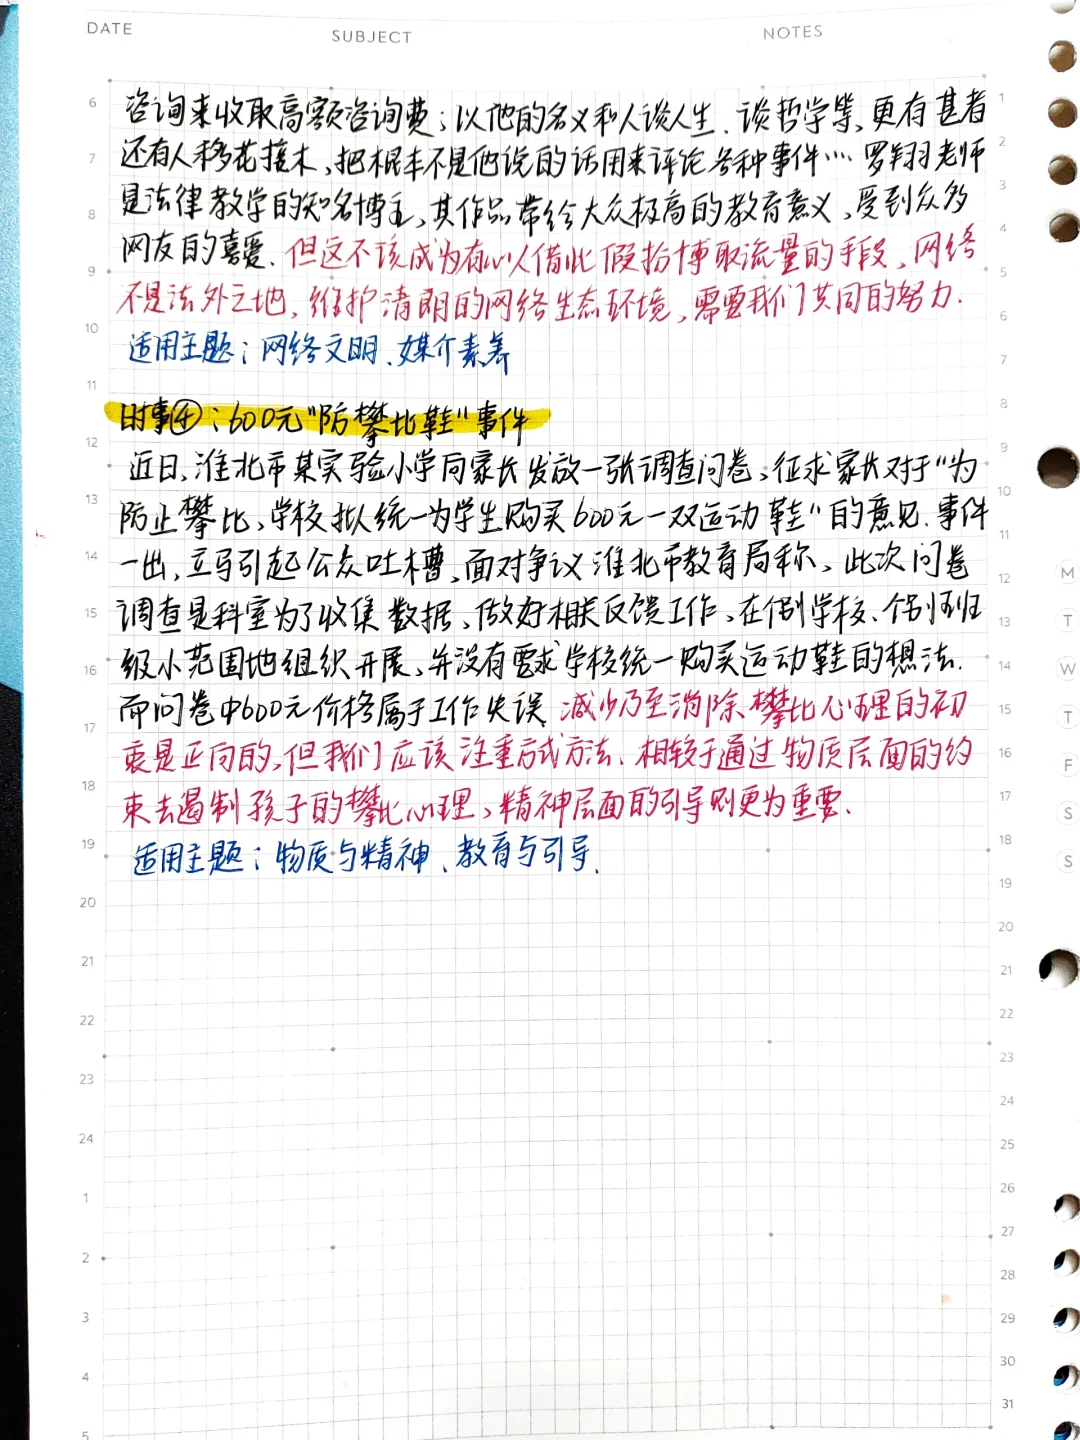 DATE SUBJECT NOTES
咨询来收取高额咨询费；以他的名义和人谈人生、谈哲学等，更有甚者
还有人移花接木，把根本不是他说的话用来评论各种事件…… 罗翔老师
是法律教学的知名博主，其作品带给大众极高的教育意义，受到众多
网友的喜爱．但这不该成为有心人借此假扮博取流量的手段，网络
不是法外之地，维护清朗的网络生态环境，需要我们共同的努力．
适用主题：网络文明、媒介素养
时事④：600元“防攀比鞋”事件
近日，淮北市某实验小学向家长发放一张调查问卷，征求家长对于“为
防止攀比，学校拟统一为学生购买600元一双运动鞋”的意见．事件
一出，立马引起公众吐槽，面对争议淮北市教育局称，此次问卷
调查是科室为了收集数据，做好相关反馈工作，在个别学校、个别班
级小范围地组织开展，并没有要求学校统一购买运动鞋的想法．
而问卷中600元价格属于工作失误．减少乃至消除攀比心理的初
衷是正向的，但我们应该注重方式方法．相较于通过物质层面的约
束去遏制孩子的攀比心理，精神层面的引导则更为重要．
适用主题：物质与精神、教育与引导．
6
7
8
9
10
11
12
13
14
15
16
17
18
19
20
21
22
23
24
1
2
3
4
5
1
2
3
4
5
6
7
8
9
10
11
12
13
14
15
16
17
18
19
20
21
22
23
24
25
26
27
28
29
30
31
M
T
W
T
F
S
S